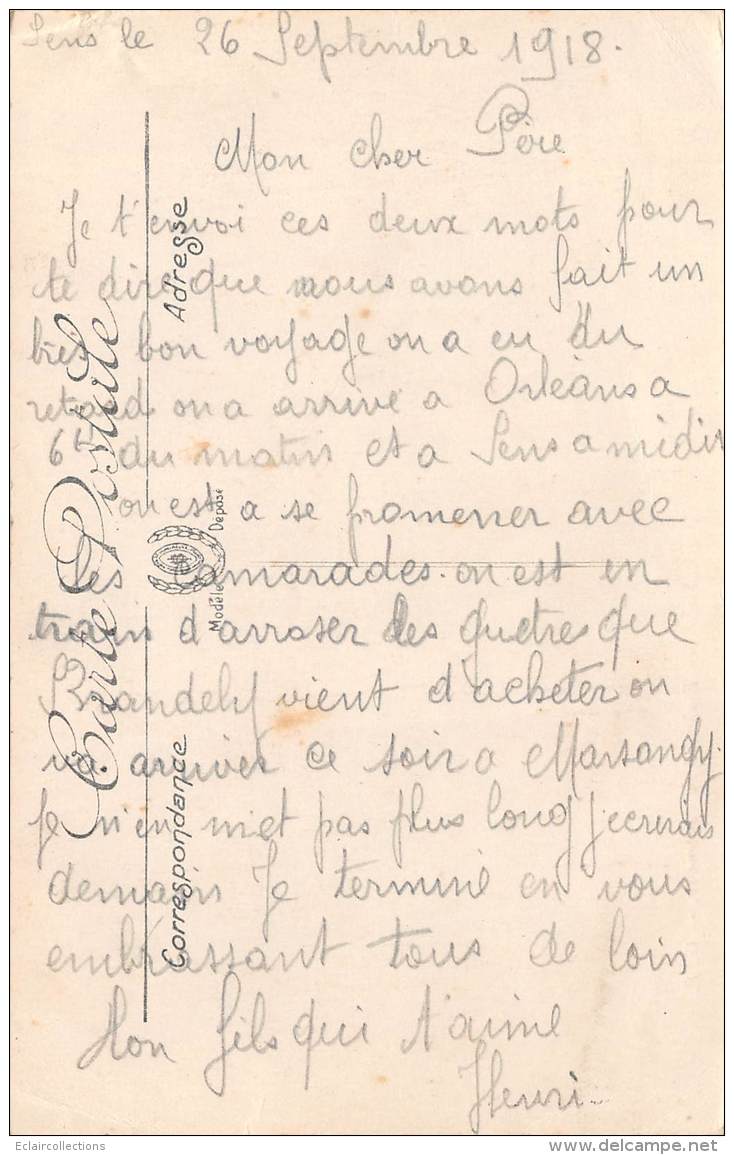 Sens le 26 Septembre 1918.
Mon cher Père
Je t'envoi ces deux mots pour
te dire que nous avons fait un
bies bon voyage on a eu du
retard on a arrive a Orléans a
6h du matin et a Sens a midis
on est a se promener avec
les camarades. on est en
train d'arroser les guetres que
Brandely vient d'acheter on
va arriver ce soir a Marsangy.
Je n'en met pas plus long j'ecrirais
demain Je termine en vous
embrassant tous de loin
Mon fils qui t'aime
Henri.
Carte Postale
Correspondance
Adresse
Modèle Déposé
Eclaircollections